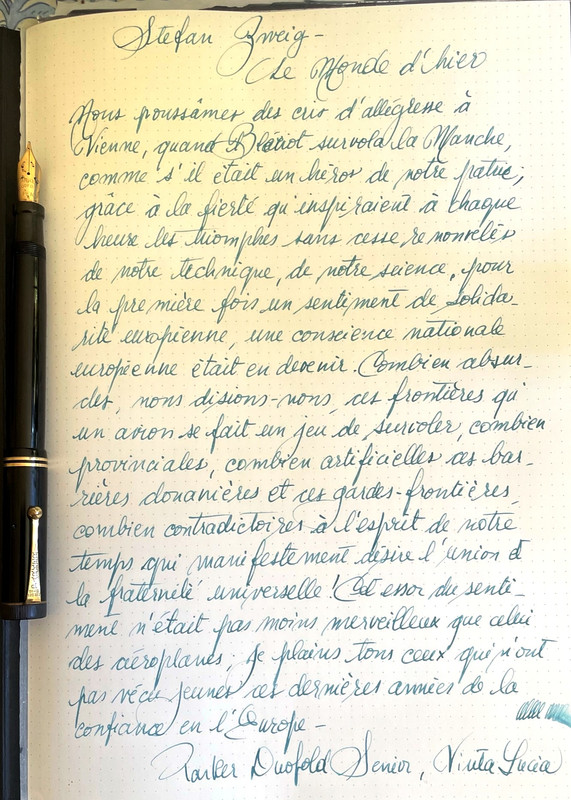 Stefan Zweig -
Le Monde d'hier
Nous poussâmes des cris d'allégresse à
Vienne, quand Blériot survola la Manche,
comme s'il était un héros de notre patrie ;
grâce à la fierté qu'inspiraient à chaque
heure les triomphes sans cesse renouvelés
de notre technique, de notre science, pour
la première fois un sentiment de solida-
rité européenne, une conscience nationale
européenne était en devenir. Combien absur-
des, nous disions-nous, ces frontières qu'
un avion se fait un jeu de survoler, combien
provinciales, combien artificielles ces bar-
rières douanières et ces gardes-frontières,
combien contradictoires à l'esprit de notre
temps qui manifestement désire l'union et
la fraternité universelle ! Cet essor du senti-
ment n'était pas moins merveilleux que celui
des aéroplanes ; je plains tous ceux qui n'ont
pas vécu jeunes ces dernières années de la
confiance en l'Europe -
Parker Duofold Senior, Vinta Lucia